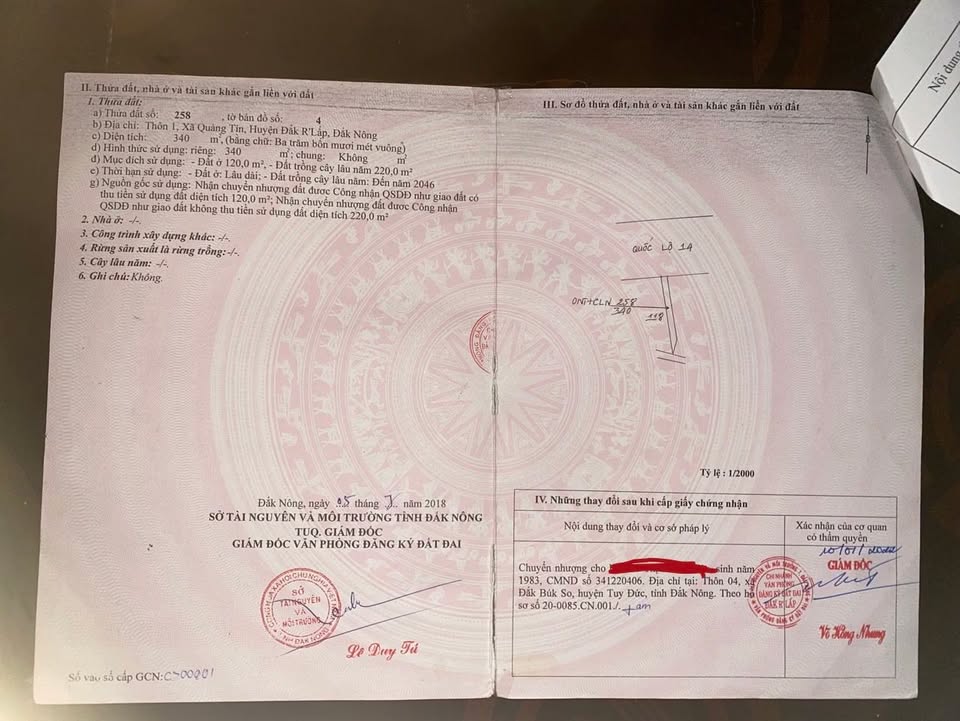 II. Thửa đất, nhà ở và tài sản khác gắn liền với đất
1. Thửa đất:
a) Thửa đất số: 258 , tờ bản đồ số: 4
b) Địa chỉ: Thôn 1, Xã Quảng Tín, Huyện Đắk R'Lấp, Đăk Nông
c) Diện tích: 340 m², (bằng chữ: Ba trăm bốn mươi mét vuông)
d) Hình thức sử dụng: riêng: 340 m²; chung: Không m²
đ) Mục đích sử dụng: - Đất ở 120,0 m², - Đất trồng cây lâu năm 220,0 m²
e) Thời hạn sử dụng: - Đất ở: Lâu dài; - Đất trồng cây lâu năm: Đến năm 2046
g) Nguồn gốc sử dụng: Nhận chuyển nhượng đất được Công nhận QSDĐ như giao đất có
thu tiền sử dụng đất diện tích 120,0 m²; Nhận chuyển nhượng đất được Công nhận
QSDĐ như giao đất không thu tiền sử dụng đất diện tích 220,0 m²
2. Nhà ở: -/-.
3. Công trình xây dựng khác: -/-.
4. Rừng sản xuất là rừng trồng:-/-.
5. Cây lâu năm: -/-.
6. Ghi chú: Không.
Đắk Nông, ngày 05 tháng 7 năm 2018
SỞ TÀI NGUYÊN VÀ MÔI TRƯỜNG TỈNH ĐẮK NÔNG
TUQ. GIÁM ĐỐC
GIÁM ĐỐC VĂN PHÒNG ĐĂNG KÝ ĐẤT ĐAI
SỞ
TÀI NGUYÊN
VÀ
MÔI TRƯỜNG
Lê Duy Tú
Số vào sổ cấp GCN:
III. Sơ đồ thửa đất, nhà ở và tài sản khác gắn liền với đất
B
QUỐC LỘ 14
ONT+CLN 258
340
118
Tỷ lệ : 1/2000
IV. Những thay đổi sau khi cấp giấy chứng nhận
Nội dung thay đổi và cơ sở pháp lý
Xác nhận của cơ quan
có thẩm quyền
Chuyển nhượng cho sinh năm
1983, CMND số 341220406. Địa chỉ tại: Thôn 04, x
Đắk Búk So, huyện Tuy Đức, tỉnh Đắk Nông. Theo hồ
sơ số 20-0085.CN.001./.
GIÁM ĐỐC
CHI NHÁNH
VĂN PHÒNG
ĐĂNG KÝ ĐẤT ĐAI
ĐẮK R'LẤP
Võ Hồng Nhung
Nội dung